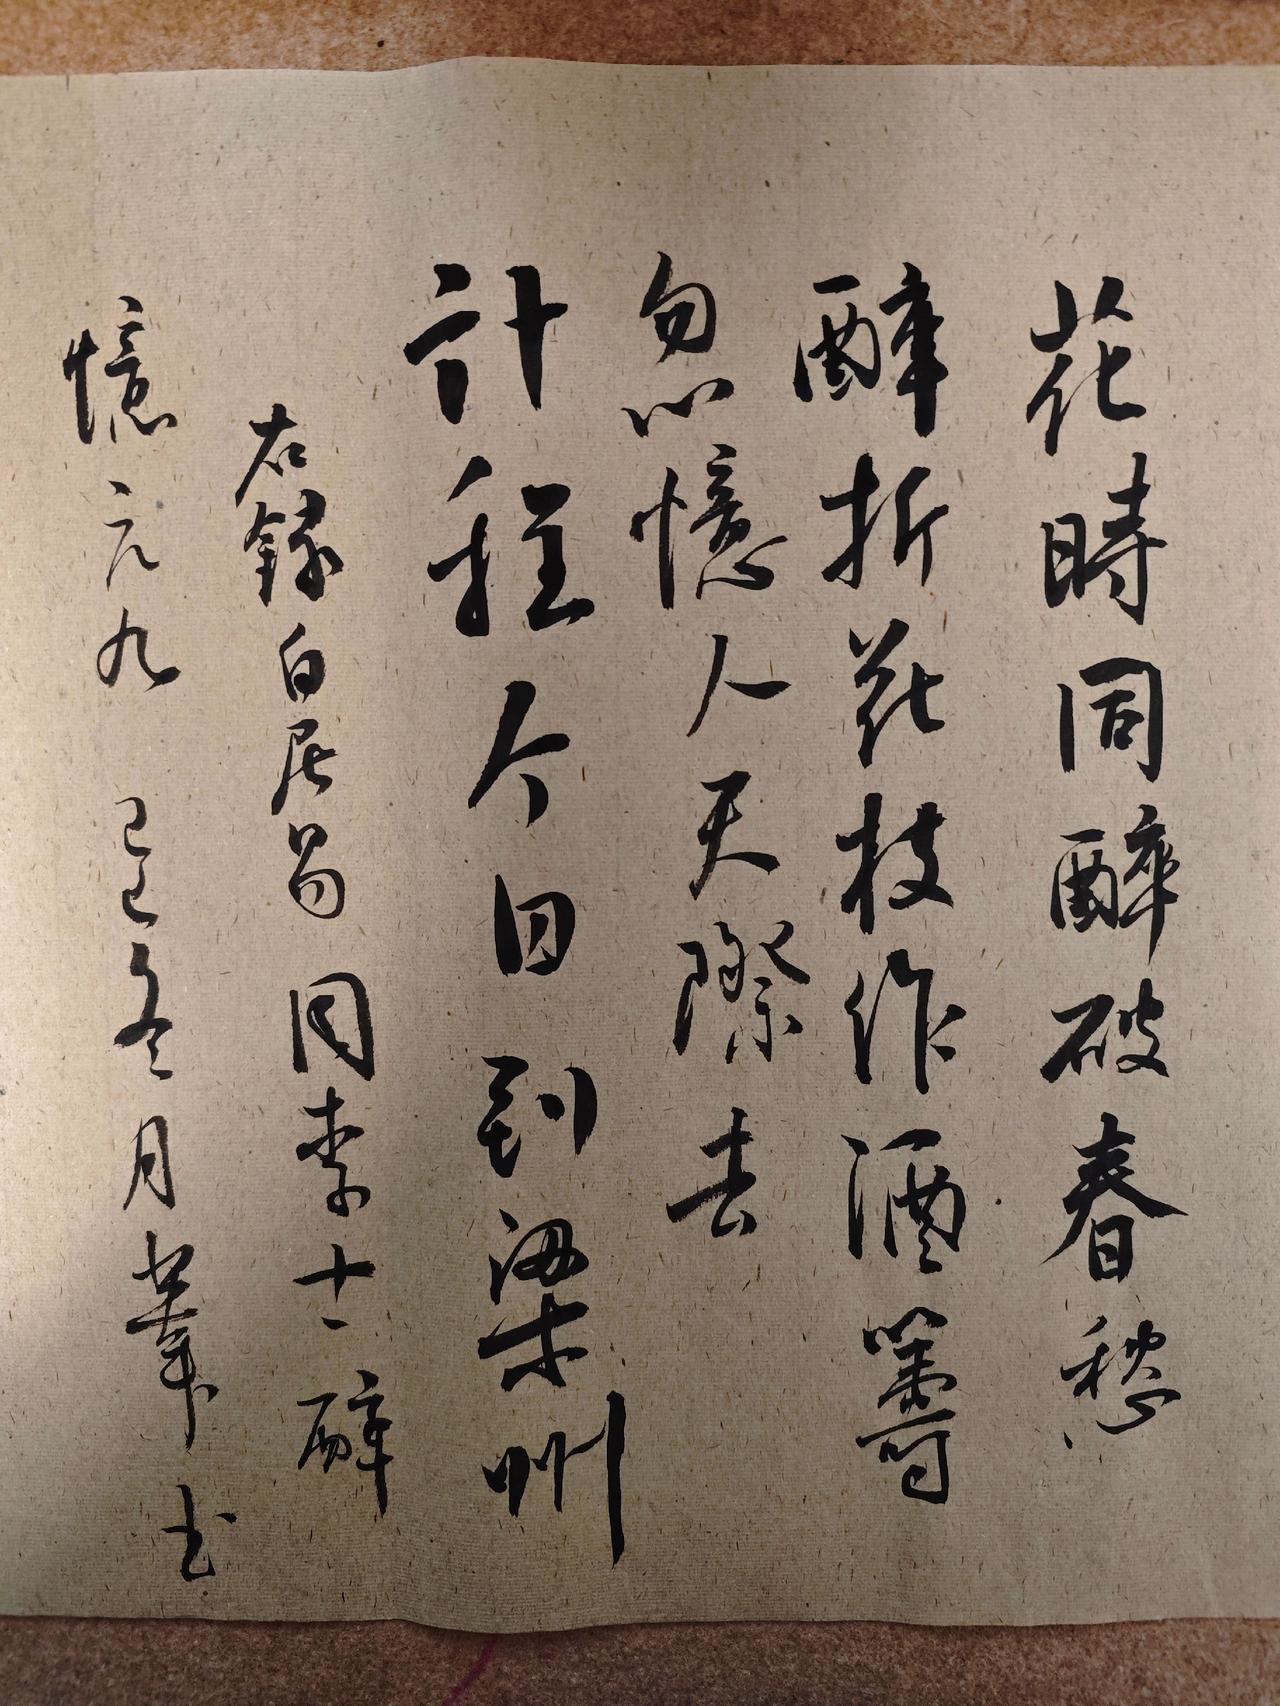 花時同醉破春愁
醉折花枝作酒籌
忽憶人天際去
計程今日到梁州
右錄白居易同李十一醉
憶元九 乙巳冬月肇书